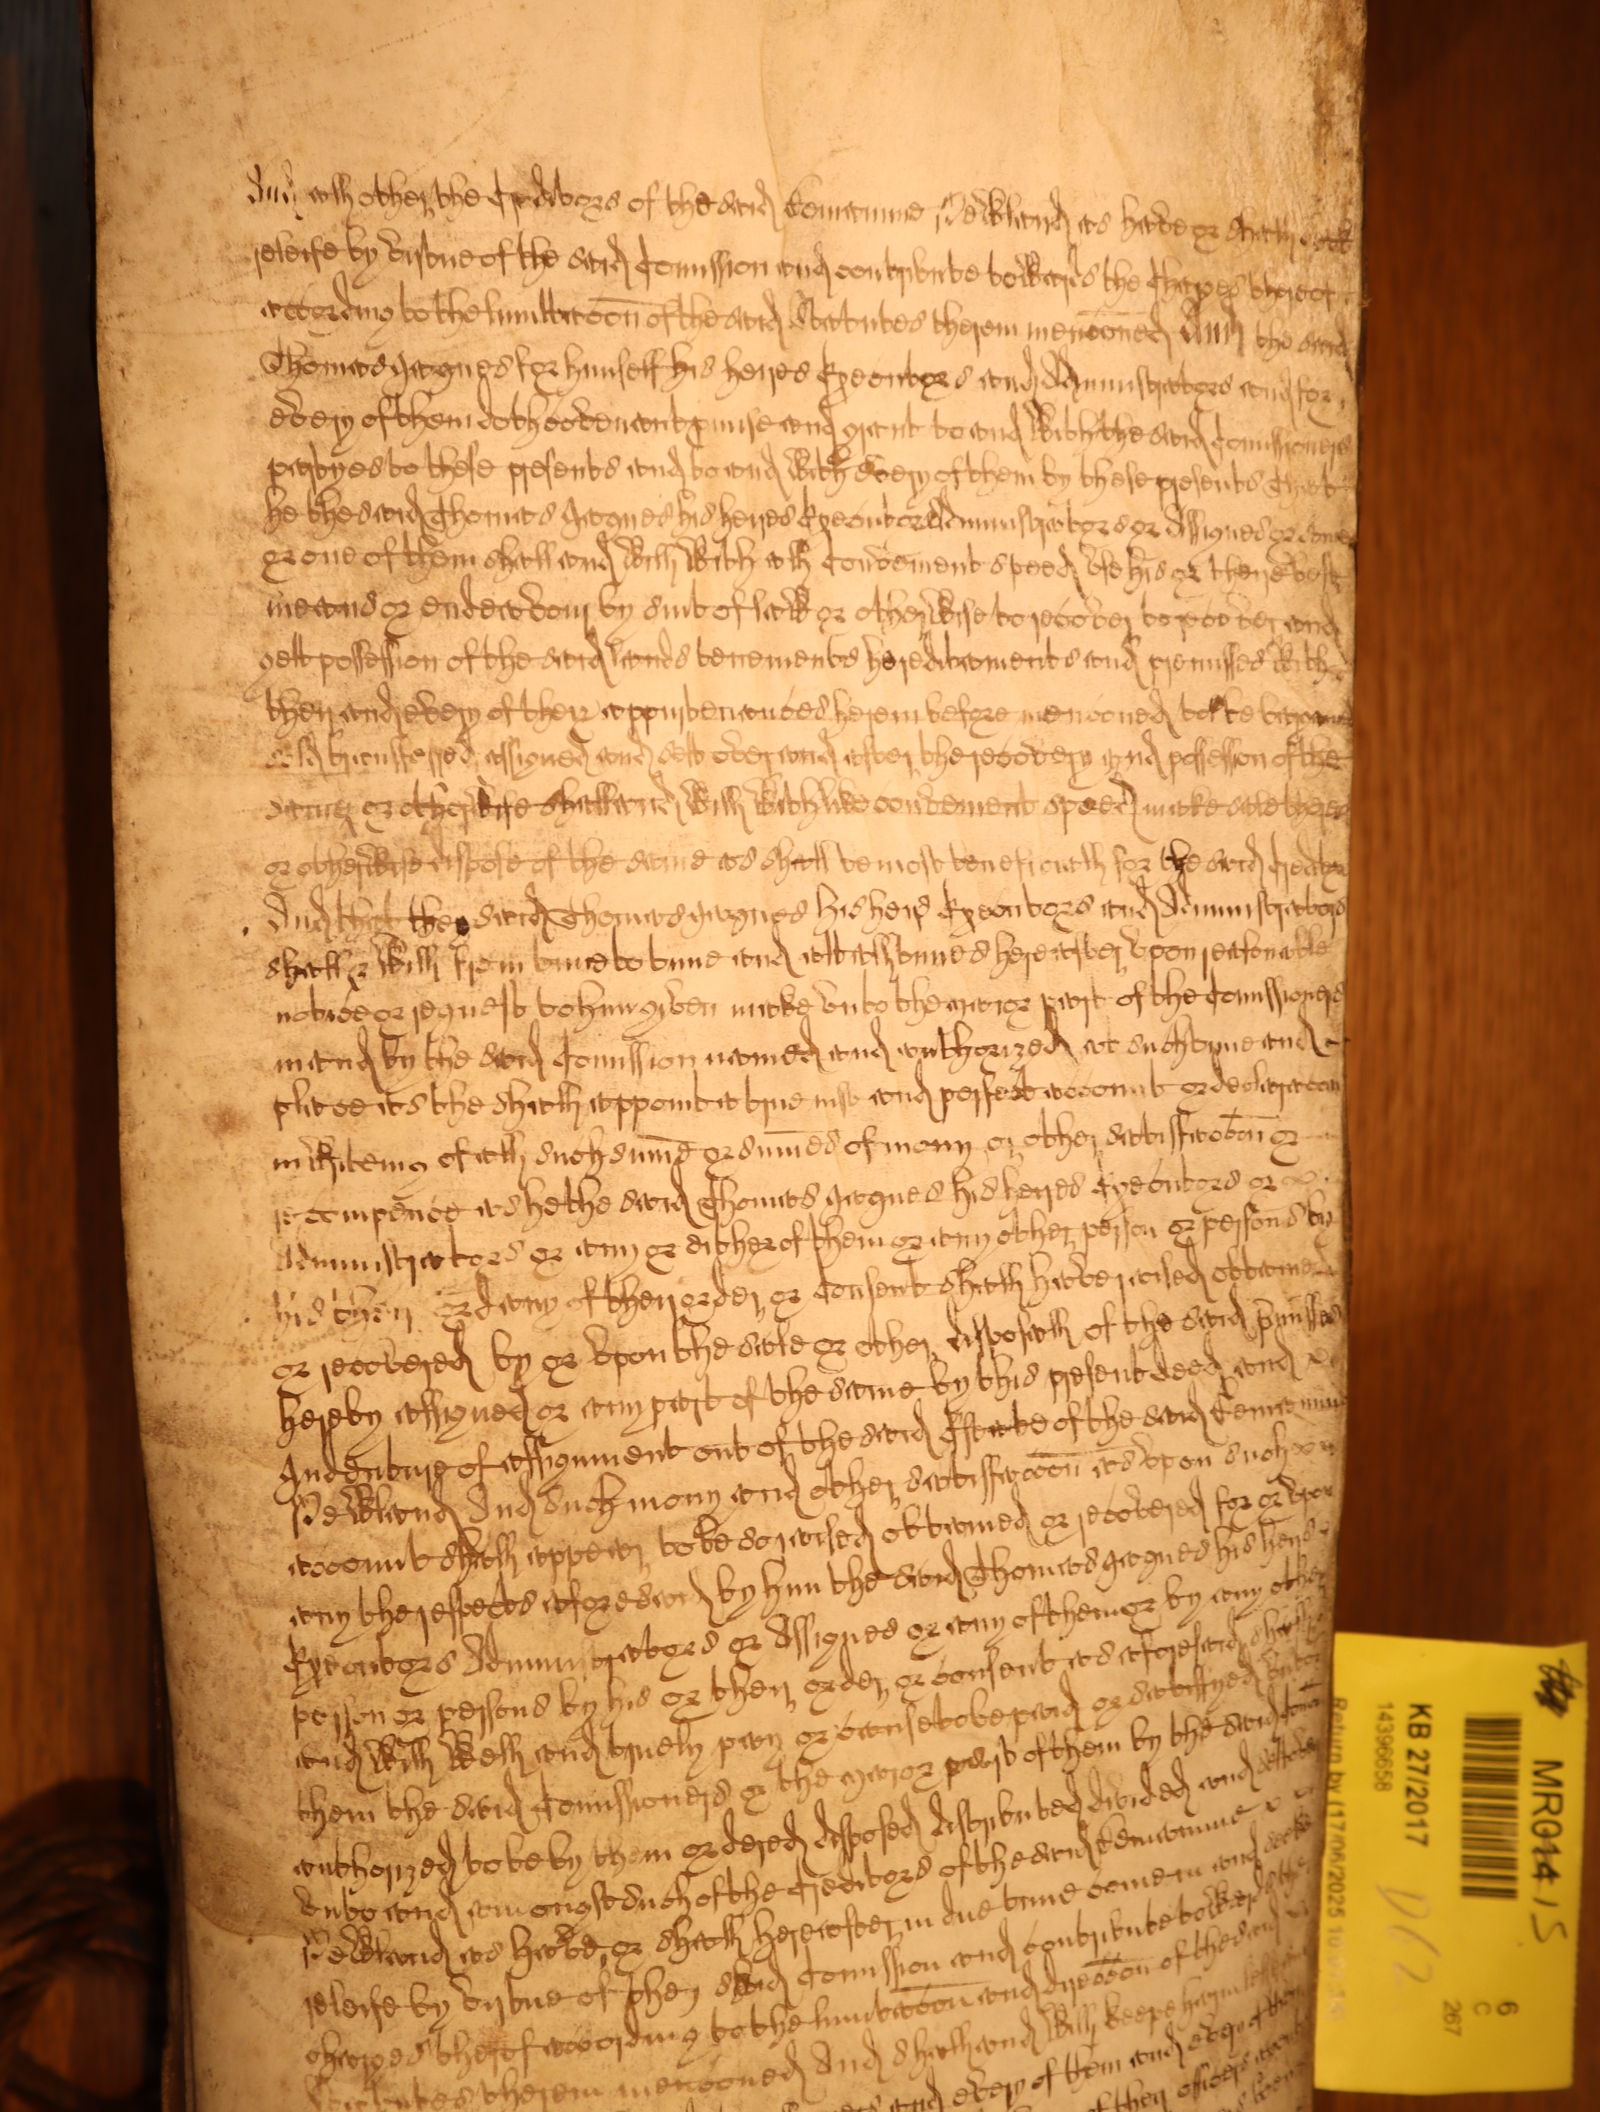 And all other the Creditors of the said Tenamine Newland as have or shall seek
releife by virtue of the said Comission and contribute towards the Charges thereof
according to the limittacon of the said Statutes therein menconed And the said
Thomas Haynes for himself his heires Executors and Administrators and for
every of them doth covenant promise and grant to and with the said Comissioners
partyes to these presents and to and with every of them by these presents That
he the said Thomas Haynes his heires Executors Administrators or Assignes or some
or one of them shall and will with all Convenient speed use his or their best
meanes or endeavour by suit of law or otherwise to recover to recover and
gett possession of the said lands tenements hereditaments and premisses with
their and every of their appurtenances herein before menconed to be bargained
sold transferred assigned and sett over and after the recovery and possession of the
same or otherwise shall and will with like convenient speed make sale thereof
or otherwise dispose of the same as shall be most beneficiall for the said Creditors
And that the said Thomas Haynes his heirs Executors and Administrators
shall & will from time to time and att all times hereafter upon reasonable
notice or request to him given make unto the Maior part of the Comissioners
in and by the said Comission named and authorized at such tyme and
place as the shall appoint a true just and perfect account or declaracon
in writeing of all such summe or summes of mony or other satisfaccon or
recompence as he the said Thomas Haynes his heires Executors or
Administrators or any or either of them or any other person or persons by
his their or any of their order or Consent shall have raised obtained
or recovered by or upon the sale or other disposall of the said premisses
hereby assigned or any part of the same by this present deed and
Indenture of assignment out of the said Estate of the said Tenamine
Newland And such mony and other satisfaccon as upon such
account shall appear to be so raised obtained or recovered for or upon
any the respects aforesaid by him the said Thomas Haynes his heirs
Executors Administrators or Assignes or any of them or by any other
person or persons by his or their order or consent as aforesaid shall
and will well and truely pay or cause to be paid or satisfyed unto
them the said Comissioners or the Maior part of them by the said Comission
authorized to be by them ordered disposed distributed divided and
unto and amongst such of the Creditors of the said Tenamine
Newland as have or shall hereafter in due time come in and seeke
releife by virtue of they said Comission and contribute towards the
charges thereof according to the limitacon and direccon of the said
Statutes therein menconed And shall and will keepe harmlesse
and every of them and every of them
of their officers
MR014/5
KB 27/2017
14396658
6
C
267
D62
Return by (17/06/2025